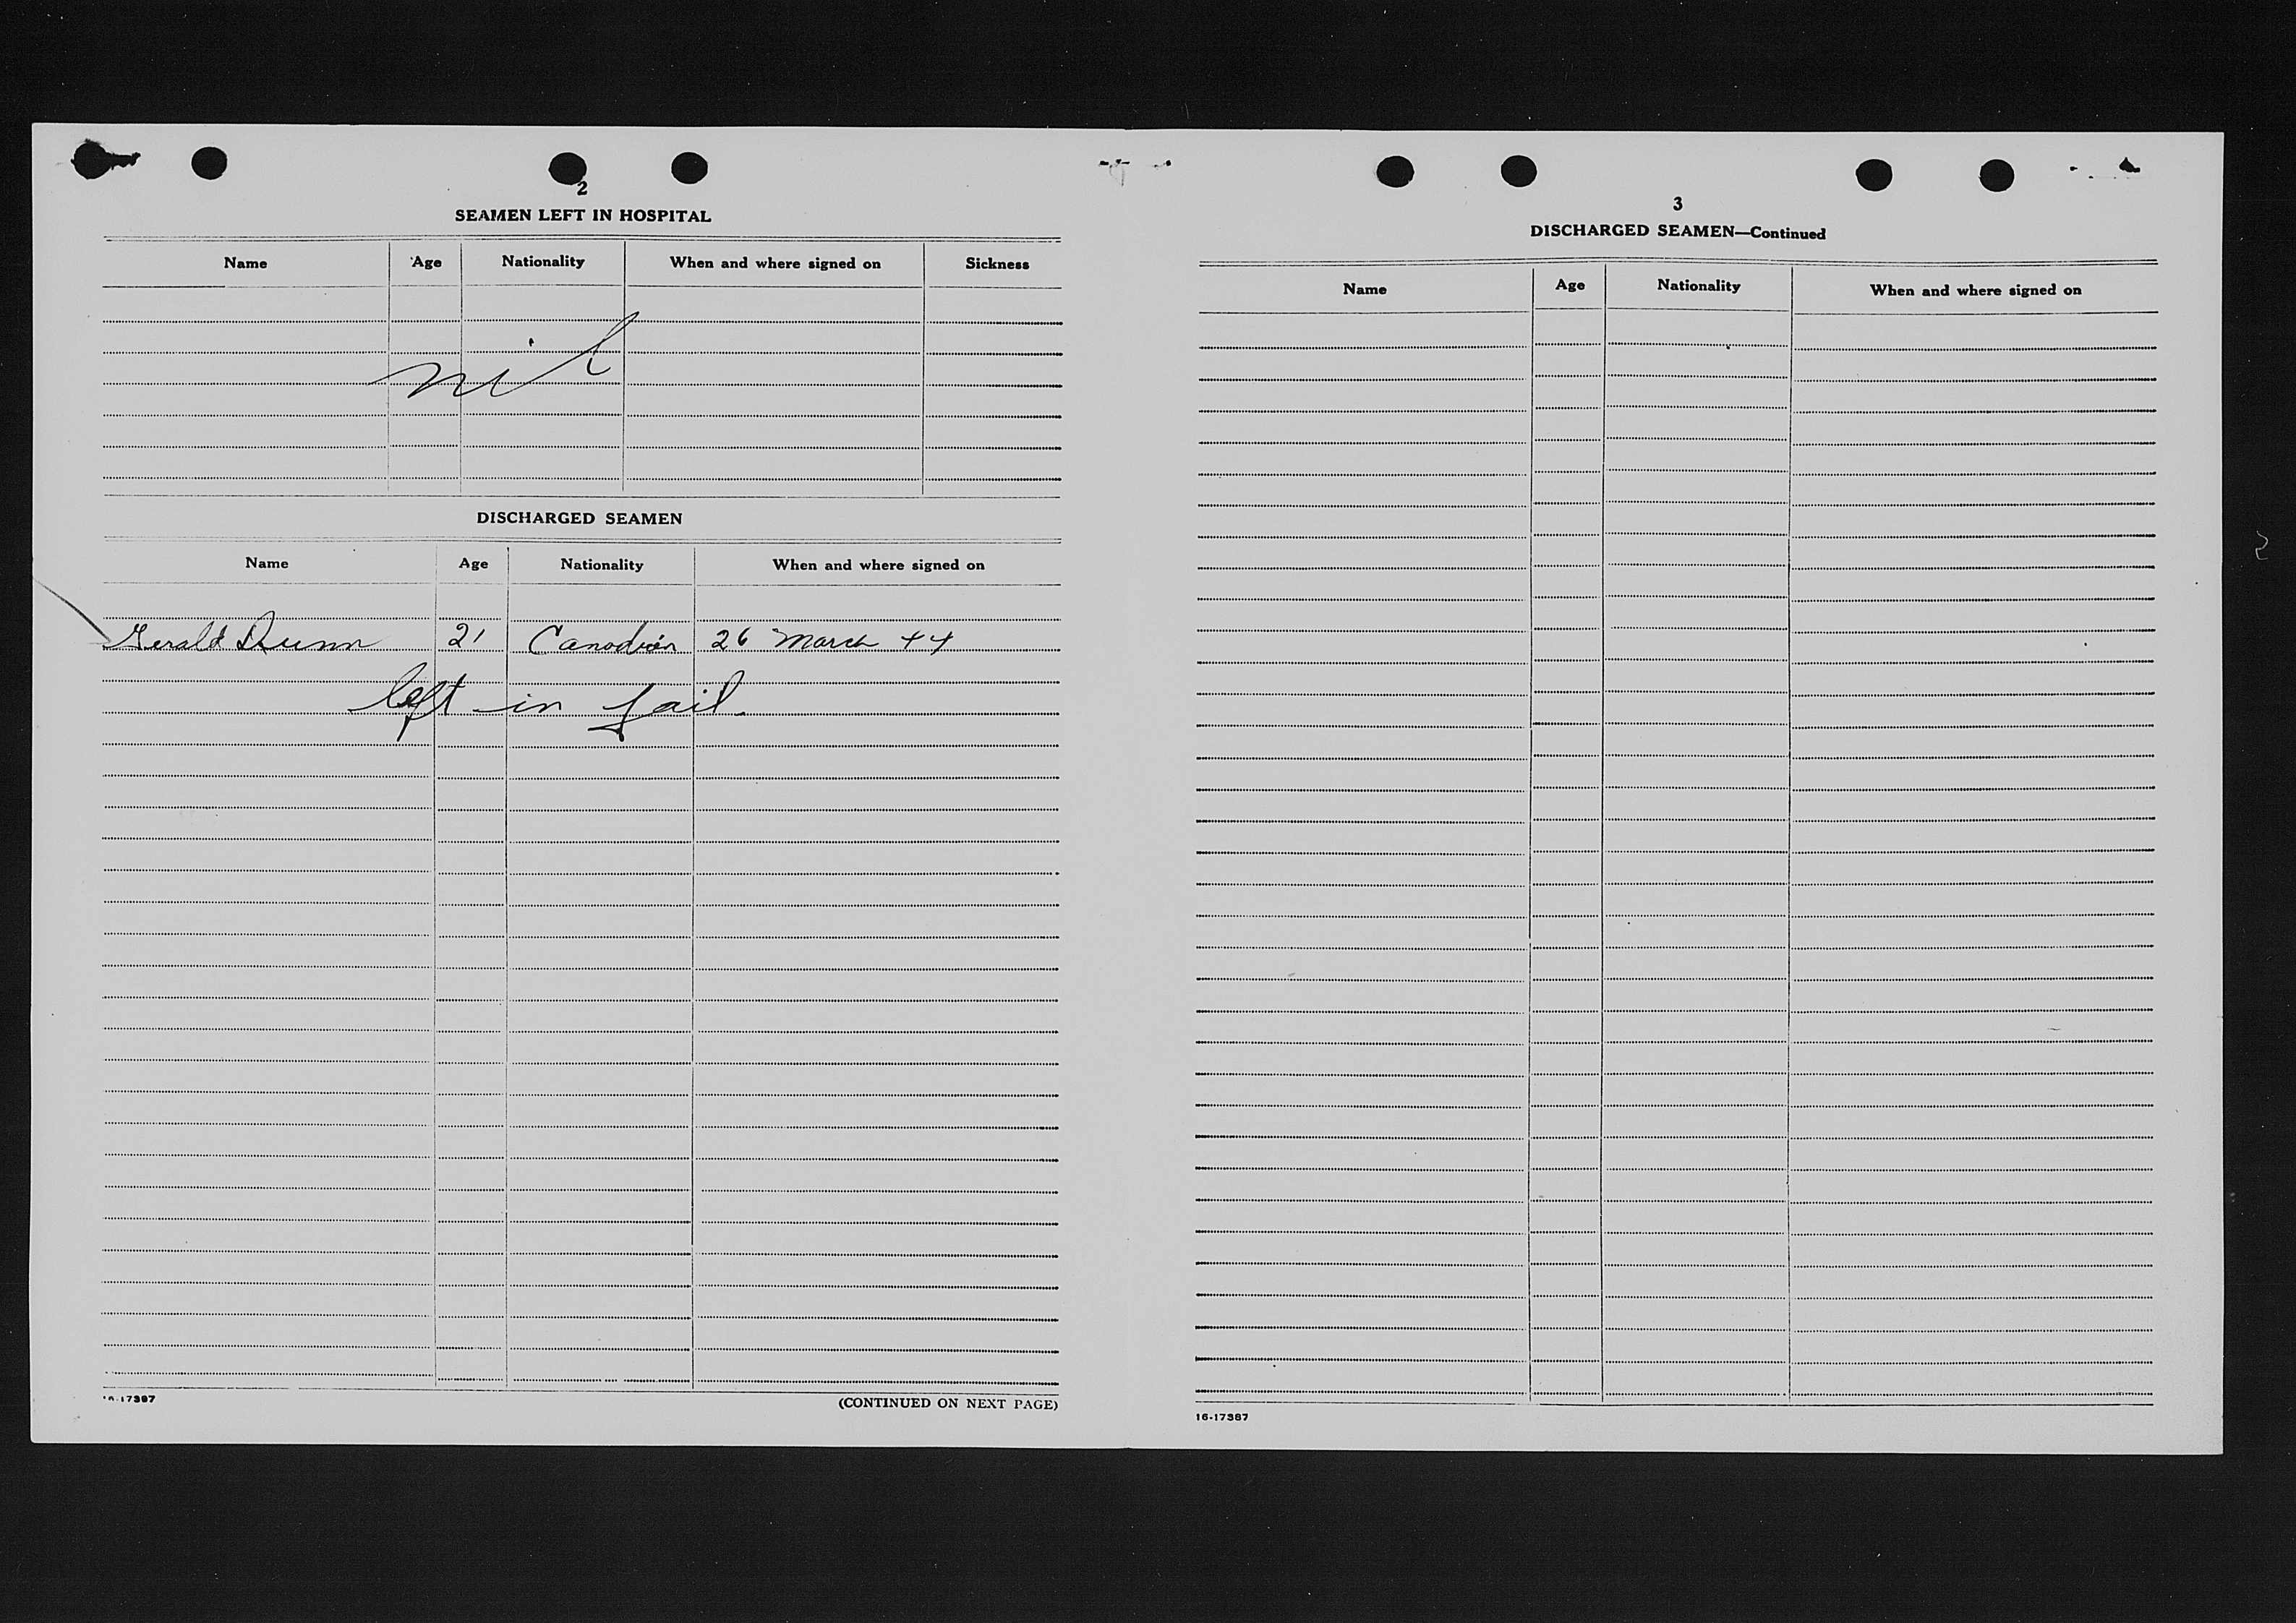 2
SEAMEN LEFT IN HOSPITAL
Name Age Nationality When and where signed on Sickness
nil
DISCHARGED SEAMEN
Name Age Nationality When and where signed on
Gerald Dunn 21 Canadian 26 March 44
left in jail.
16-17387 (CONTINUED ON NEXT PAGE)
3
DISCHARGED SEAMEN—Continued
Name Age Nationality When and where signed on
16-17387